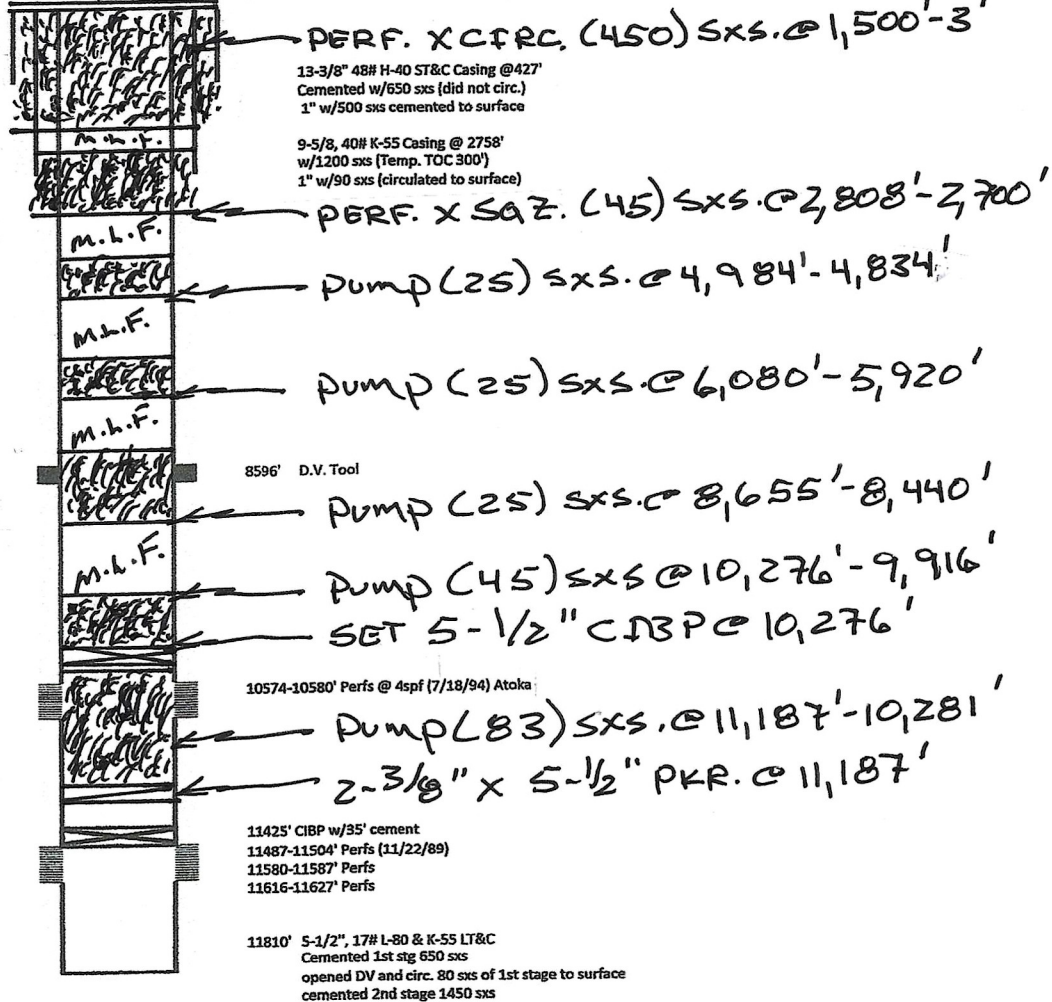 PERF. X CIRC. (450) SXS. @ 1,500'-3'
13-3/8" 48# H-40 ST&C Casing @427'
Cemented w/650 sxs (did not circ.)
1" w/500 sxs cemented to surface
M.L.F.
9-5/8, 40# K-55 Casing @ 2758'
w/1200 sxs (Temp. TOC 300')
1" w/90 sxs (circulated to surface)
PERF. X SQZ. (45) SXS. @ 2,808'-2,700'
M.L.F.
PUMP (25) SXS. @ 4,984'-4,834'
M.L.F.
PUMP (25) SXS. @ 6,080'-5,920'
M.L.F.
8596' D.V. Tool
PUMP (25) SXS. @ 8,655'-8,440'
M.L.F.
PUMP (45) SXS @ 10,276'-9,916'
SET 5-1/2" CIBP @ 10,276'
10574-10580' Perfs @ 4spf (7/18/94) Atoka
PUMP (83) SXS. @ 11,187'-10,281'
2-3/8" X 5-1/2" PKR. @ 11,187'
11425' CIBP w/35' cement
11487-11504' Perfs (11/22/89)
11580-11587' Perfs
11616-11627' Perfs
11810' 5-1/2", 17# L-80 & K-55 LT&C
Cemented 1st stg 650 sxs
opened DV and circ. 80 sxs of 1st stage to surface
cemented 2nd stage 1450 sxs